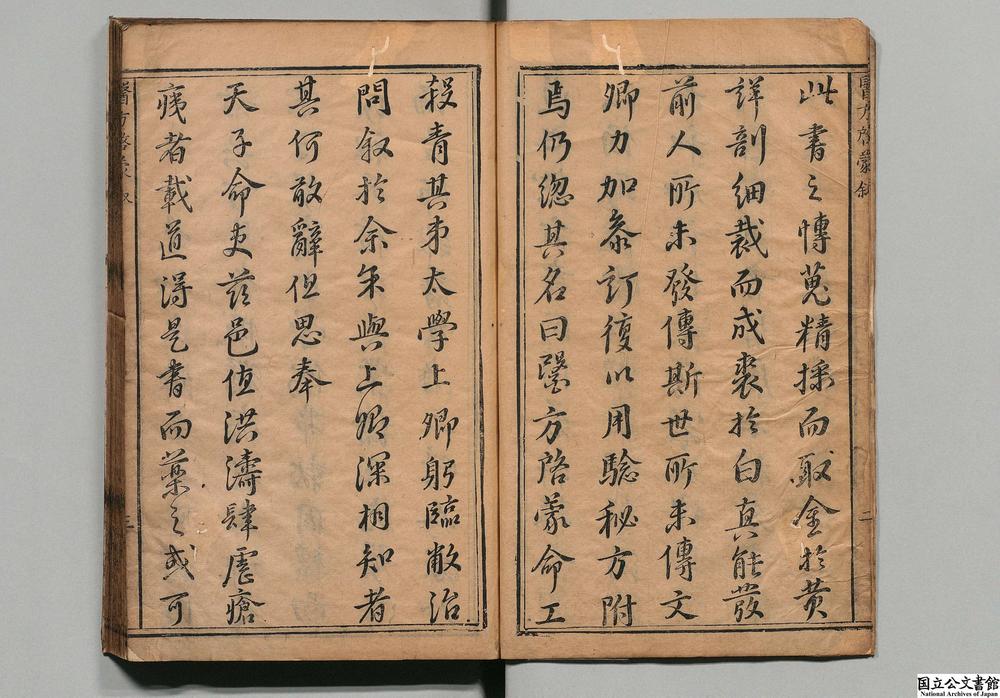 醫方啓蒙敘
二
此書之博蒐精採而取金於黃
詳剖細裁而成裘於白真能發
前人所未發傳斯世所未傳文
卿力加叅訂復以用驗秘方附
焉仍總其名曰醫方啓蒙命工
殺青其弟太學上卿躬臨敝治
問敘於余余與上卿深相知者
其何敢辭但思奉
天子命吏茲邑值洪濤肆虐瘡
痍者載道得是書而藥之或可
醫方啓蒙敘
三
国立公文書館
National Archives of Japan